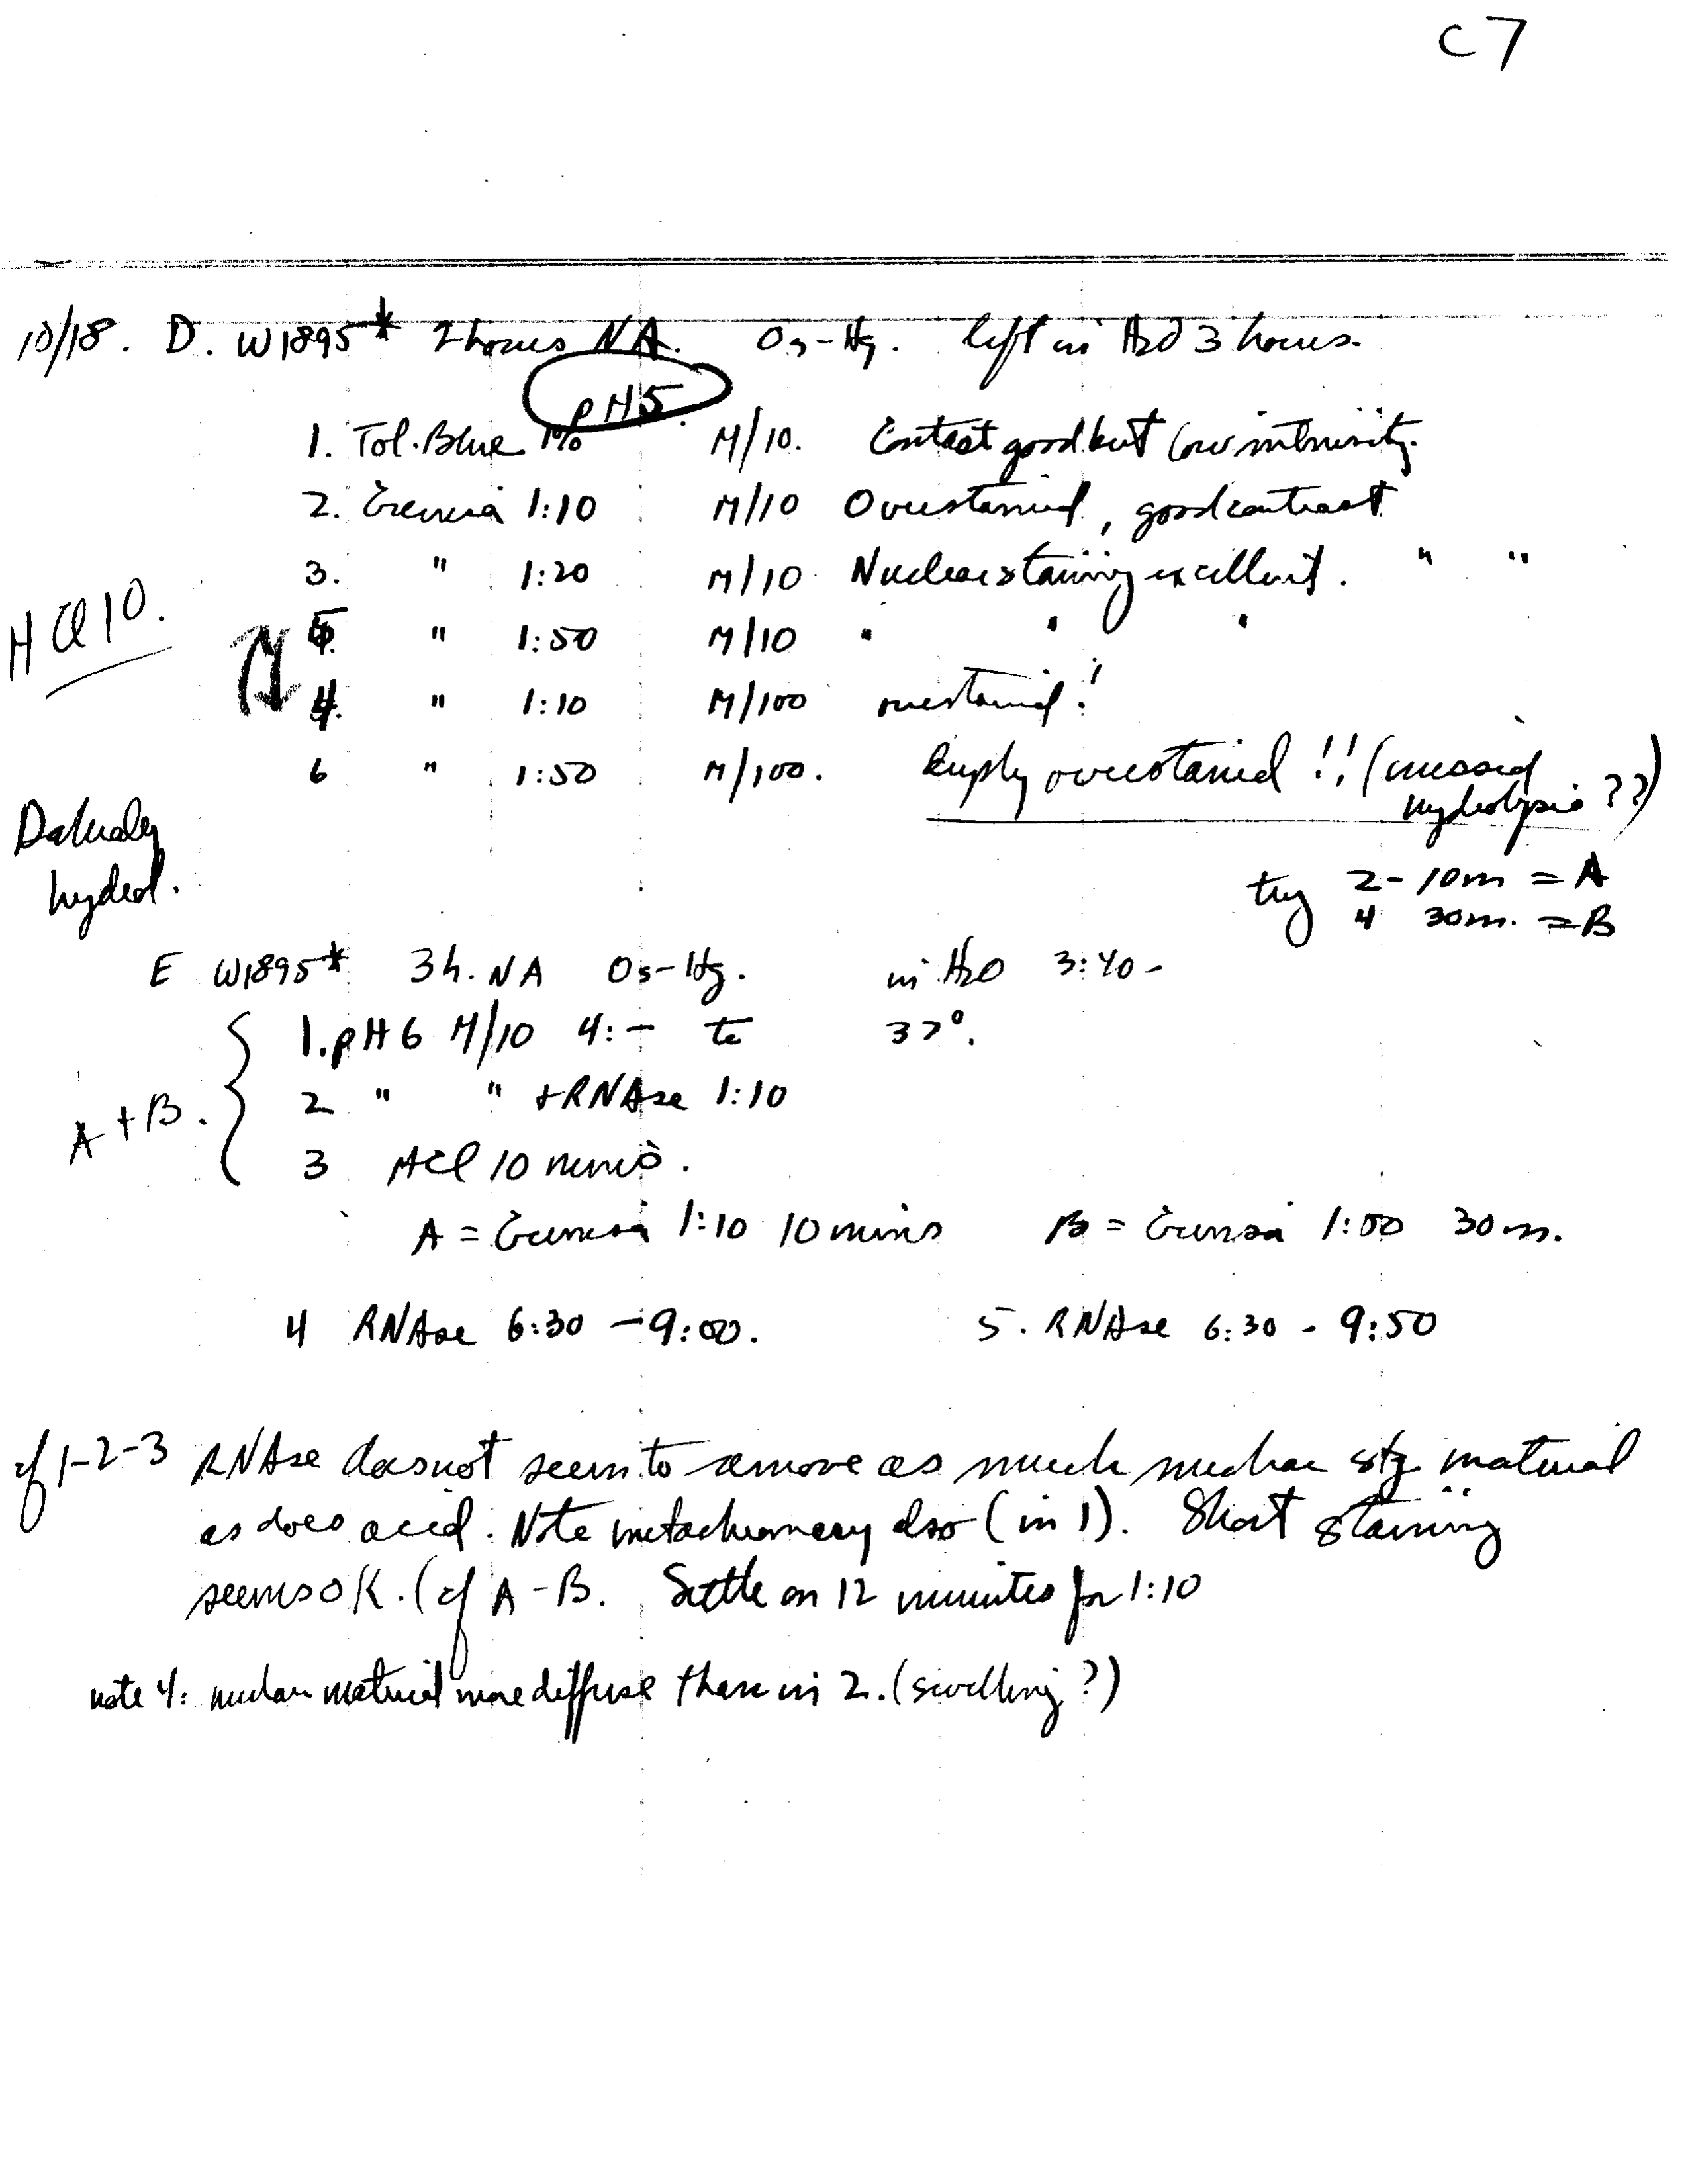 C7
10/18. D. W1895* 2 hours NA. Os-Hg. left in H2O 3 hours.
pH5
1. Tol. Blue 1% M/10. Contrast good but low intensity.
2. Giemsa 1:10 M/10 Overstained, good contrast
3. " 1:20 M/10 Nuclear staining excellent. " "
HCl 10.
5. " 1:50 M/10 " " "
4. " 1:10 M/100 overstained!
6 " 1:50 M/100. overstained!! (missed
hydrolysis??)
hydrol.
try 2 - 10m = A
4 30m. = B
E W1895* 3h. NA Os-Hg. in H2O 3:40 -
1. pH 6 M/10 4:- to 37°.
A + B.
2 " " + RNAse 1:10
3 HCl 10 mins.
A = Giemsa 1:10 10 mins B = Giemsa 1:50 30m.
4 RNAse 6:30 - 9:00. 5. RNAse 6:30 - 9:50
cf 1-2-3 RNAse does not seem to remove as much nuclear stg. material
as does acid. Note metachromacy also (in 1). Short staining
seems OK. (cf A - B. Settle on 12 minutes for 1:10
note 4: nuclear material more diffuse than in 2. (swelling?)